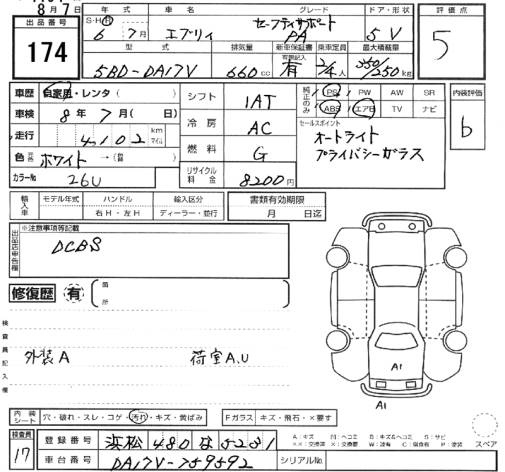 8月7日
出品番号
174
年式 車名 グレード ドア・形状
S・H・R 6年 7月 エブリィ セーフティサポート PA 5V
型式 排気量 新車保証書 乗車定員 最大積載量
5BD-DA17V 660cc 有 2/4人 350/250kg
評価点
5
内装評価
b
車歴 自家用・レンタ( )
車検 8年7月(日)
走行 4,102 km マイル
色 ホワイト →(替 )
カラーNo 26U
シフト 1AT
冷房 AC
燃料 G
リサイクル料金 8200円
純正のみ PS PW AW SR
ABS エアB TV ナビ
セールスポイント
オートライト
プライバシーガラス
輸入車 モデル年式 ハンドル 輸入区分
右H・左H ディーラー・並行
書類有効期限
月 日迄
出品店申告欄
※注意事項等記載
DCBS
修復歴 有 箇所
検査員記入欄
外装A 荷室A,U
A1
A1
内装シート 穴・破れ・スレ・コゲ・汚れ・キズ・黄ばみ
Fガラス キズ・飛石・×要す
検査員
17
登録番号 浜松480な5231
車台番号 DA17V-759592
シリアルNo.
スペア